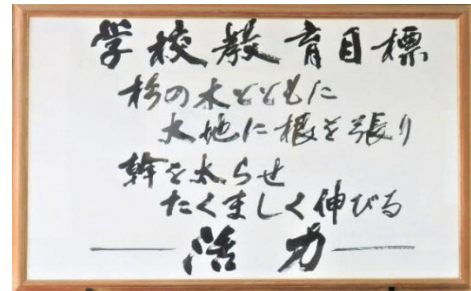 学校教育目標
杉の木とともに
大地に根を張り
幹を太らせ
たくましく伸びる
活力